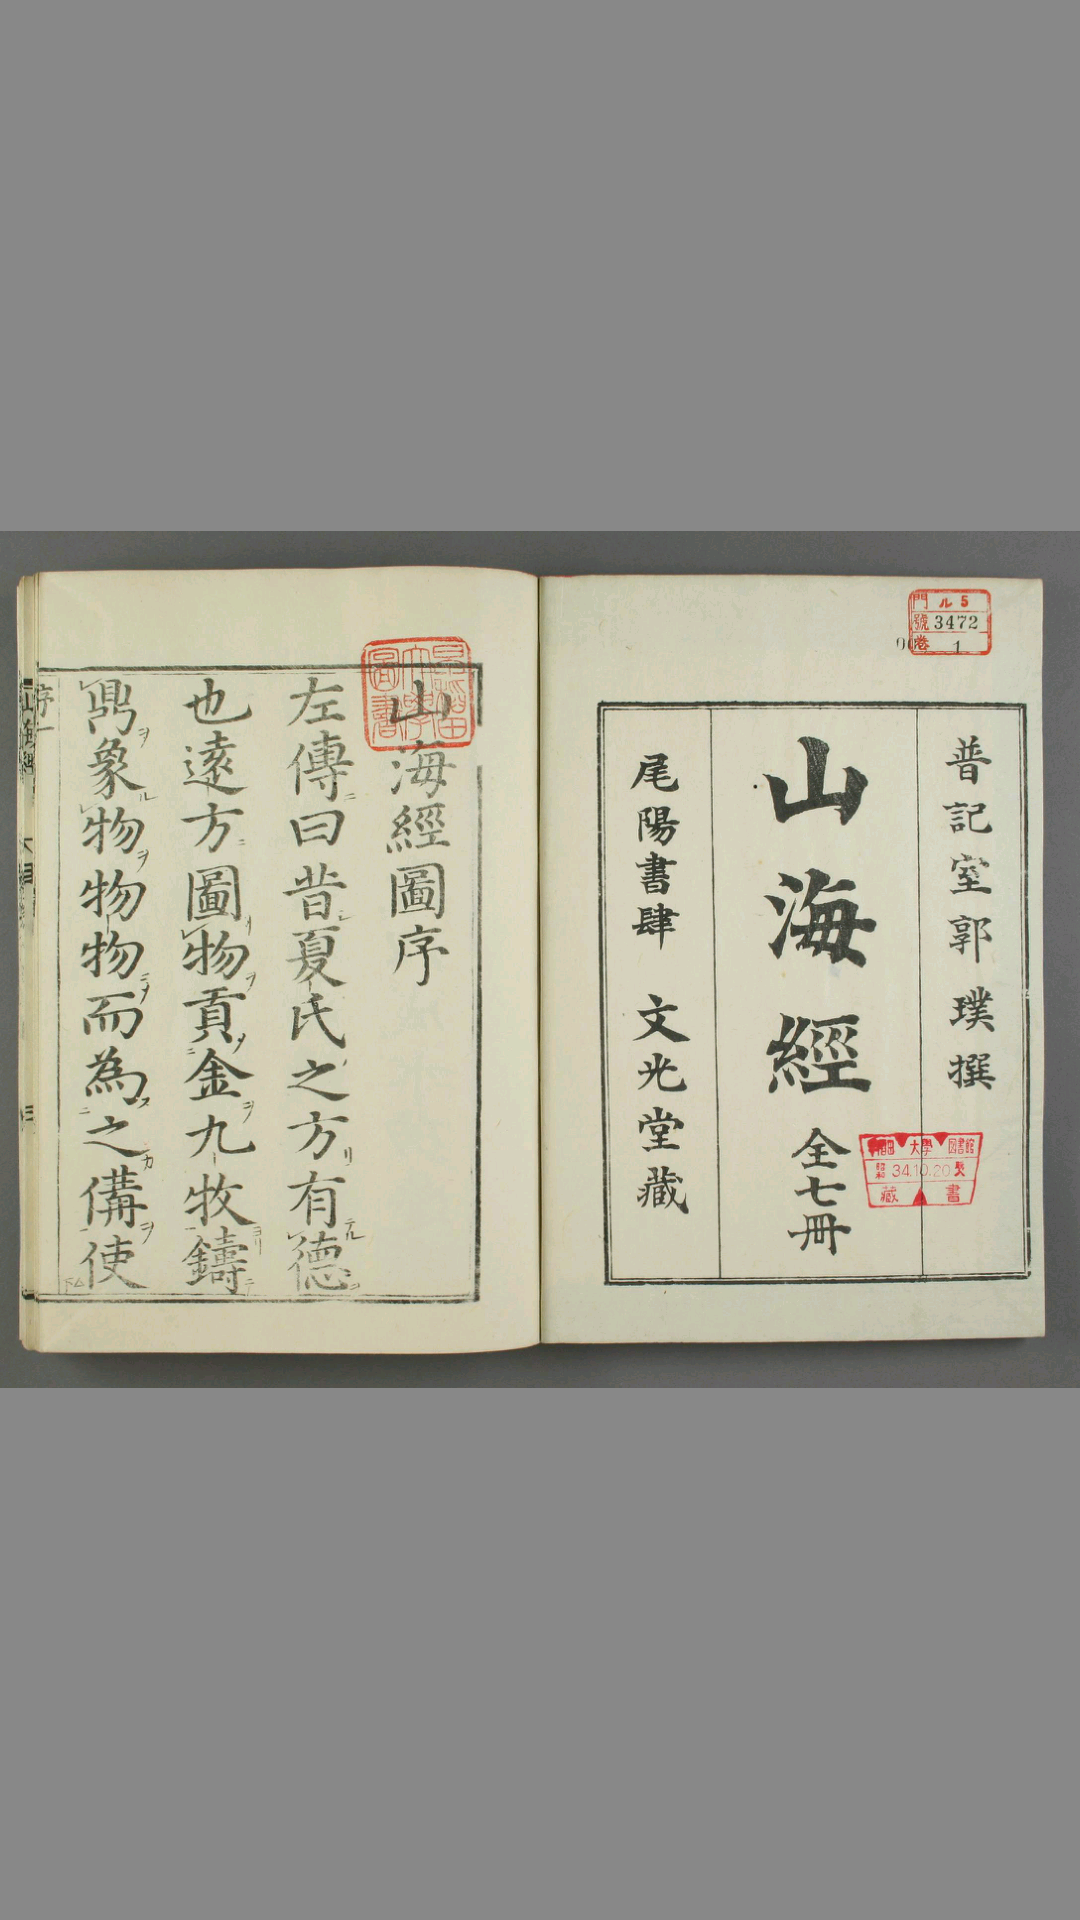 門 ル 5
號 3472
卷 1
普記室郭璞撰
山海經 全七冊
尾陽書肆 文光堂藏
大學圖書館
34.10.20
藏書
山海經圖序
左傳曰昔夏氏之方有德
也遠方圖物貢金九牧鑄
鼎象物物物而為之備使
序一